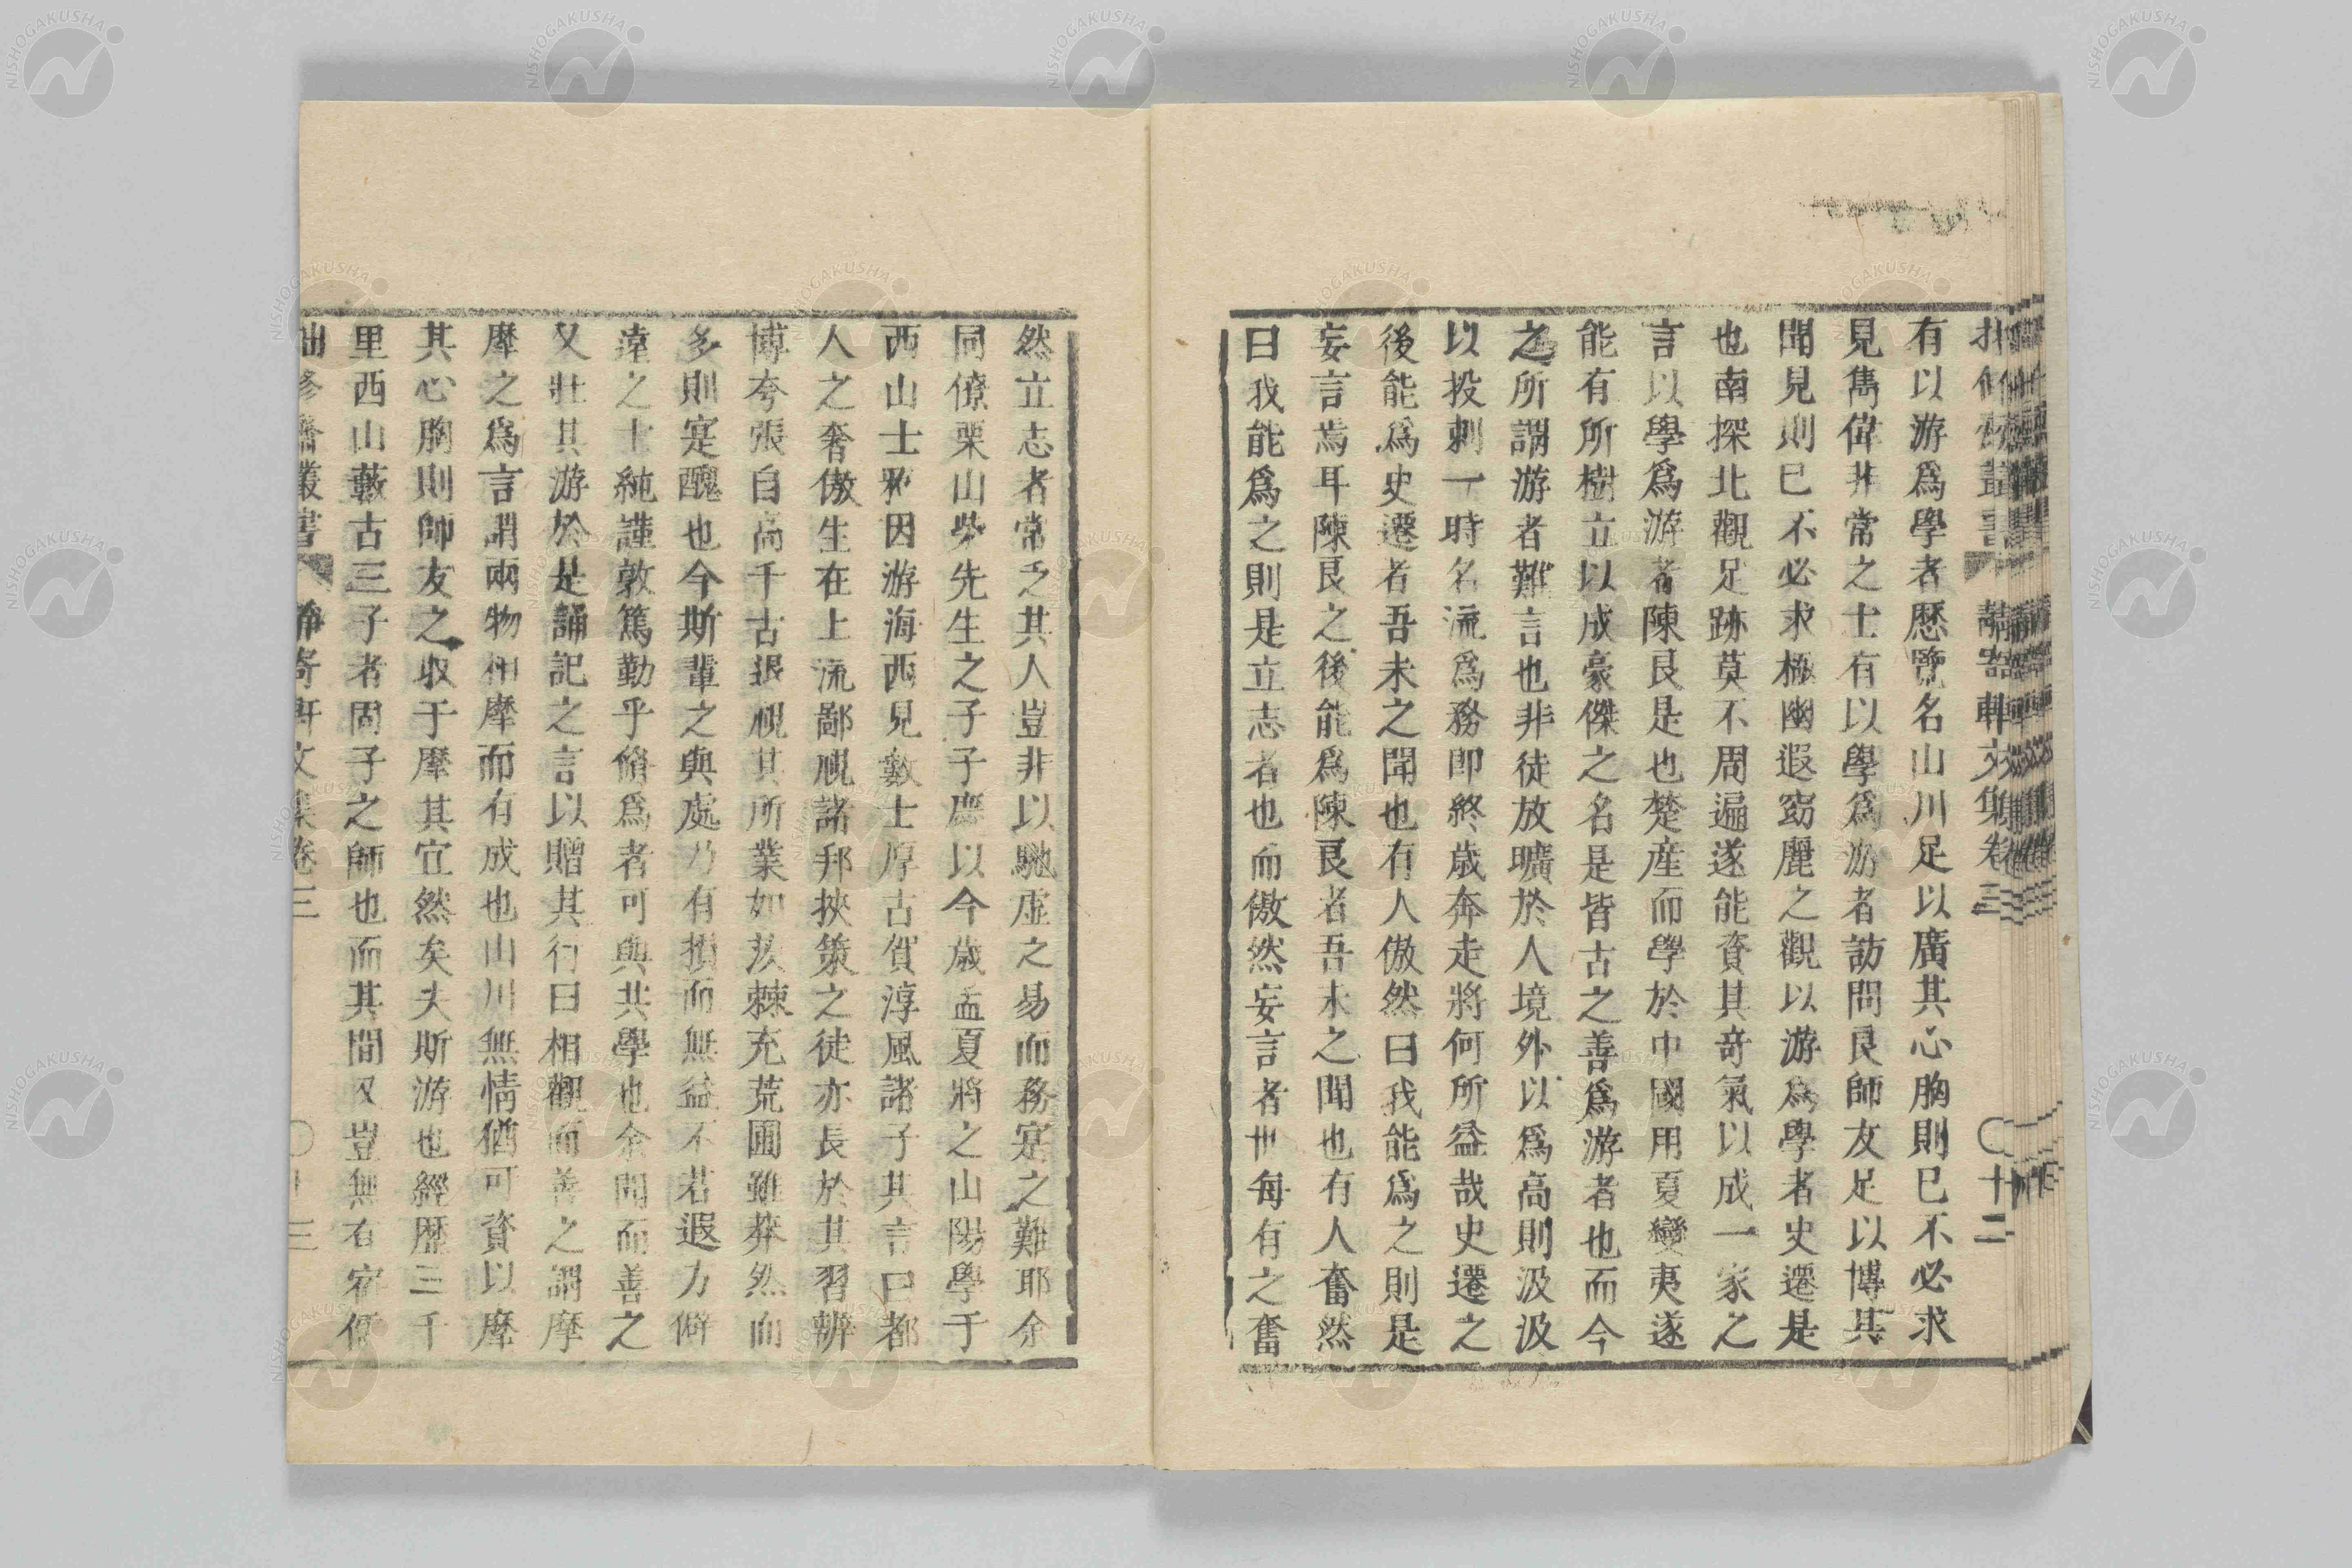 有以游爲學者歷覽名山川足以廣其心胸則已不必求
見雋偉非常之士有以學爲游者訪問良師友足以博其
聞見則已不必求極幽遐窈麗之觀以游爲學者史遷是
也南探北觀足跡莫不周遍遂能資其奇氣以成一家之
言以學爲游者陳良是也楚産而學於中國用夏變夷遂
能有所樹立以成豪傑之名是皆古之善爲游者也而今
之所謂游者難言也非徒放曠於人境外以爲高則汲汲
以投刺一時名流爲務即終歲奔走將何所益哉史遷之
後能爲史遷者吾未之聞也有人傲然曰我能爲之則是
妄言焉耳陳良之後能爲陳良者吾未之聞也有人奮然
曰我能爲之則是立志者也而傲然妄言者世每有之奮
然立志者常乏其人豈非以馳虛之易而務寔之難耶余
同僚栗山柴先生之子子應以今歲孟夏將之山陽學于
西山士邪因游海西見數士厚古賀淳風諸子其言曰都
人之奢傲生在上流鄙視諸邦挾策之徒亦長於其習辨
博夸張自高千古退視其所業如茨棘充荒圃雖莽然而
多則寔醜也今斯輩之與處乃有損而無益不若遐方僻
遠之士純謹敦篤勤乎脩爲者可與共學也余聞而善之
又壯其游於是誦記之言以贈其行曰相觀而善之謂摩
摩之爲言謂兩物相摩而有成也山川無情猶可資以摩
其心胸則師友之取于摩其宜然矣夫斯游也經歷三千
里西山藪古三子者固子之師也而其間又豈無有宿儒